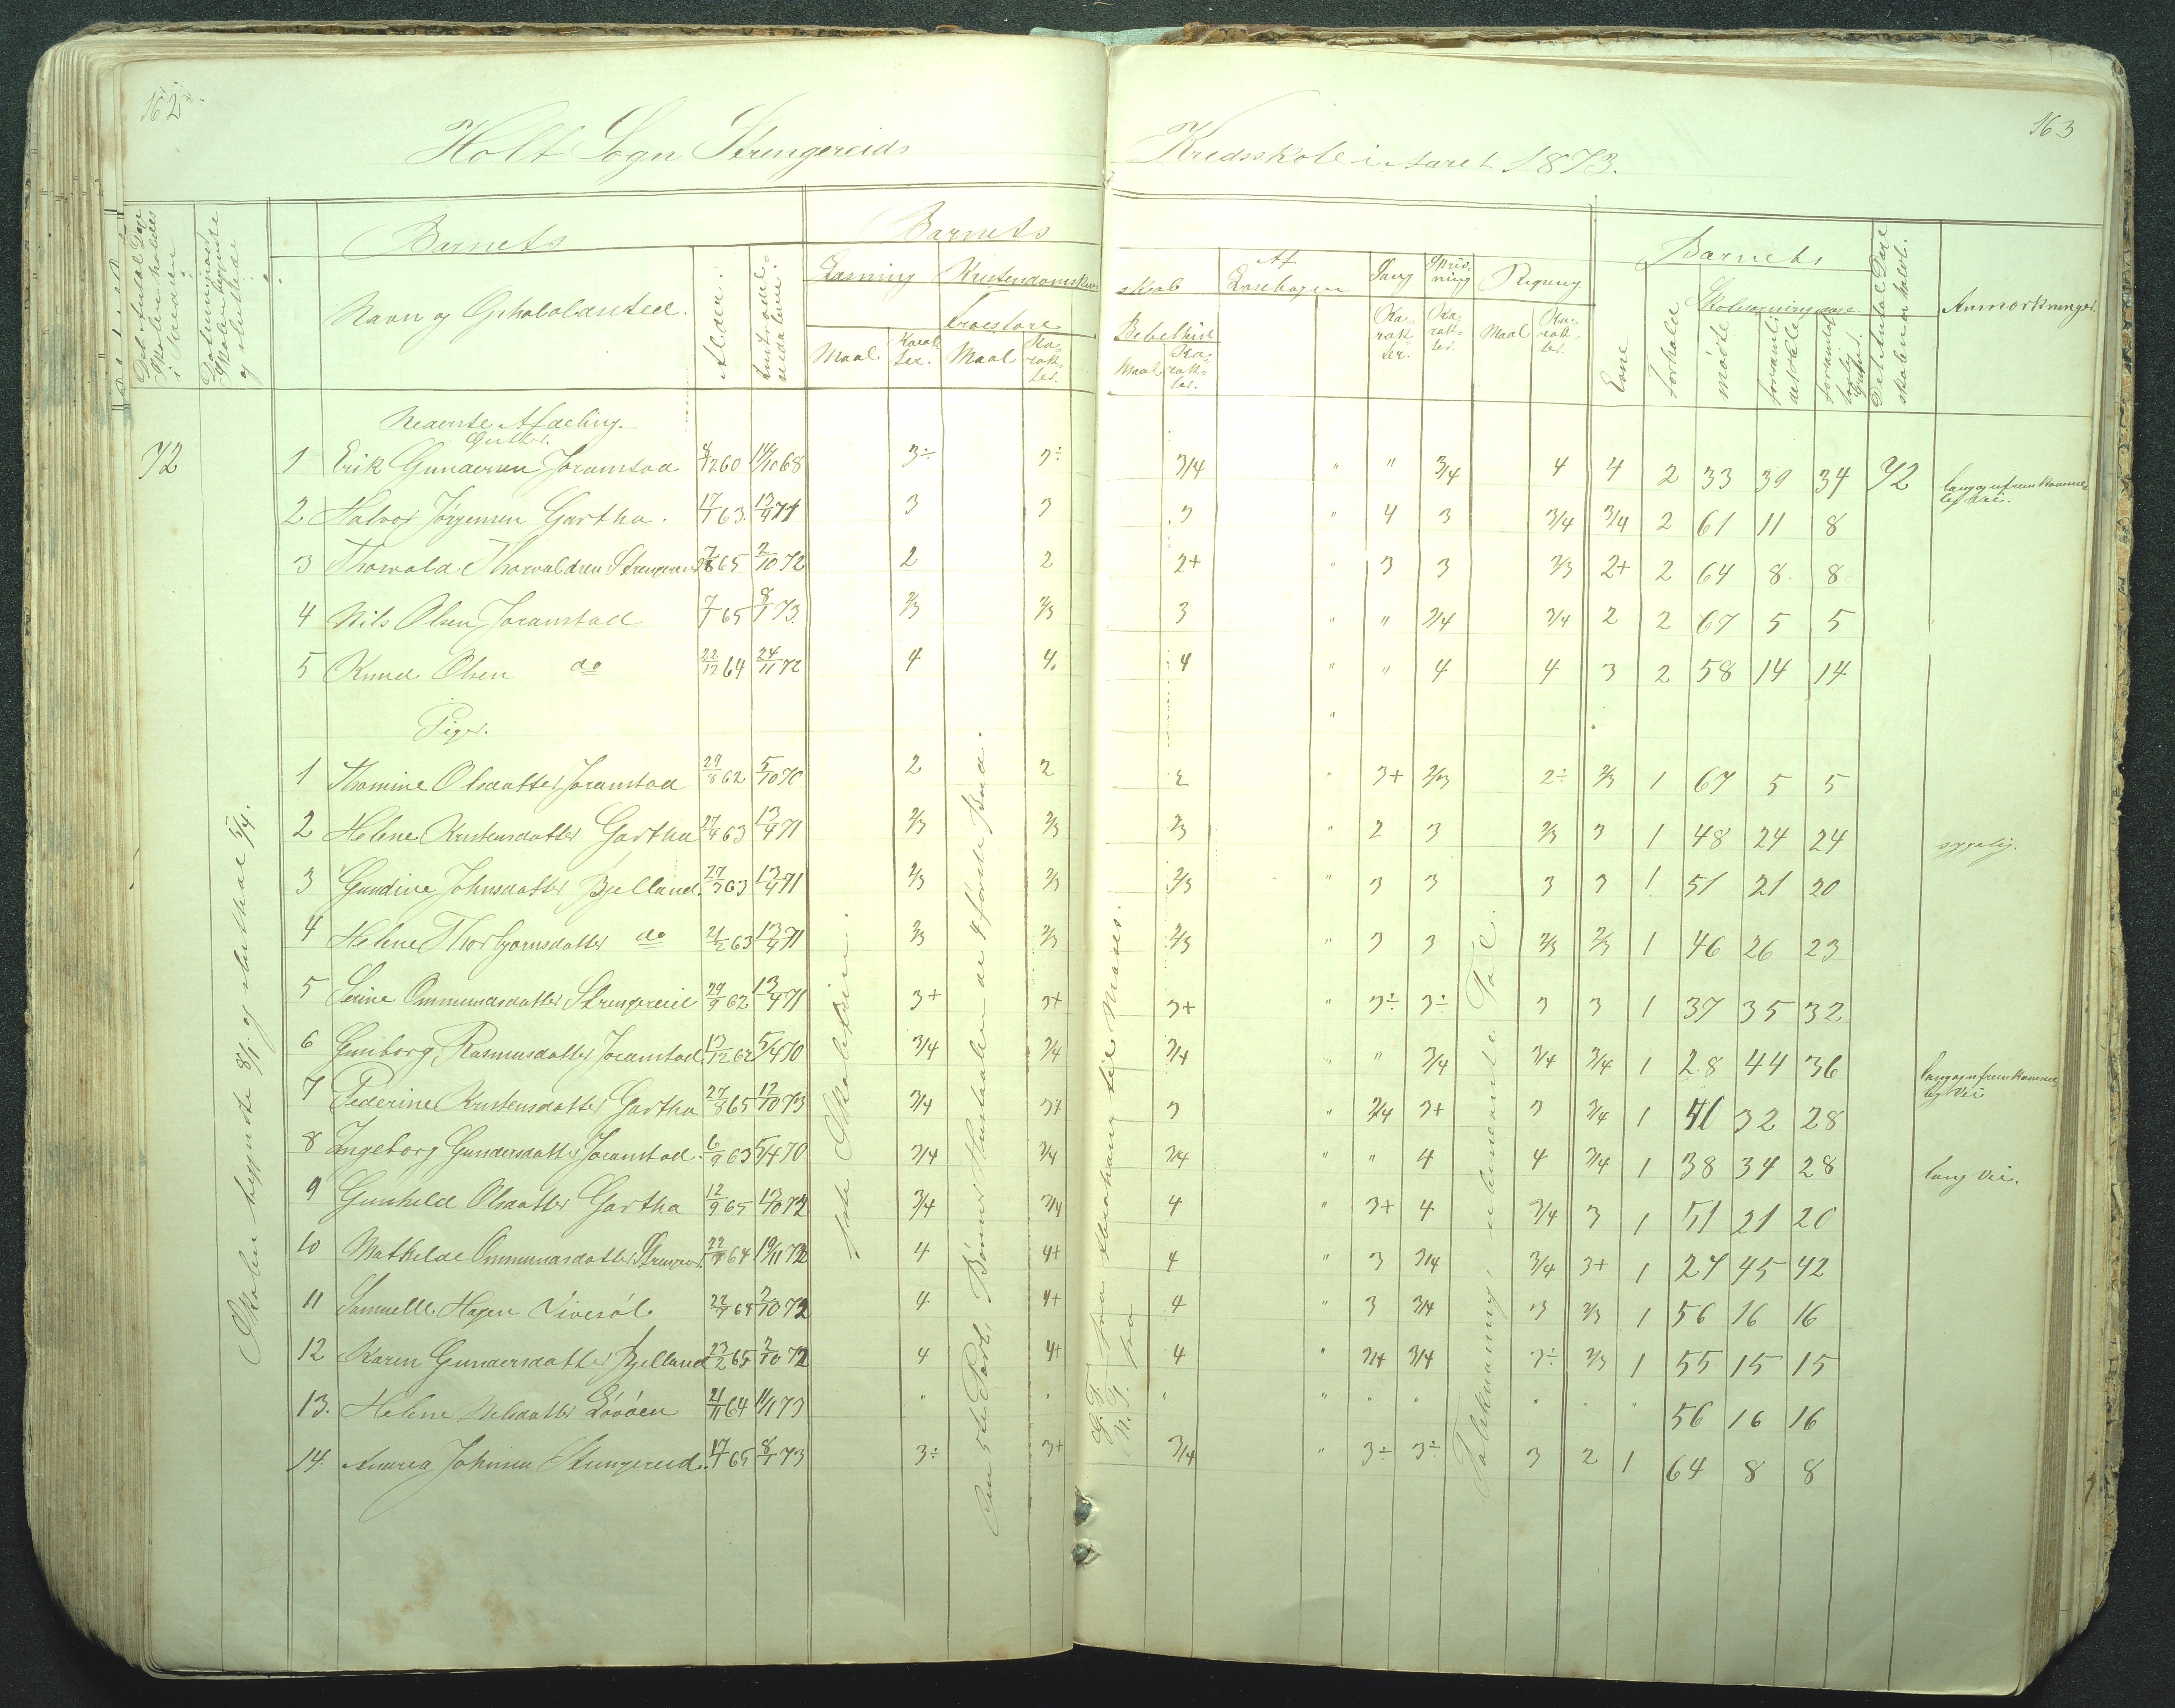 162
163
Holt Sogn Strengereids Kredsskole i Aaret 1873.
Det Antal Dage Skolen holdes i Kredsen
Datum naar Skolen begyndte og sluttede
Barnets
Navn og Opholdssted.
Alder.
Indtrædelsesdatum.
Barnets
Læsning
Maal
Karakter.
Kristendomskundskab
Troeslære
Maal
Karakter.
Bibelhist
Maal
Karakter.
Af Læsebogen
Sang
Karakter.
Skrivning
Karakter
Regning
Maal
Karakter.
Barnets
Evne
forhold
Skolesøgningsdage
mødte
forsømte i det hele
forsømte af lovlig Grund
Det Antal Dage skolen er holdt.
Anmærkninger.
Nederste Afdeling.
Gutter.
72 1 Erik Gundersen Joramstad 8/12 60 14/10 68 3÷ 3÷ 3/4 " " 3/4 4 4 2 33 39 34 72 lang og ufremkommelig Vei.
2 Halvor Jørgensen Gartha. 17/1 63. 13/4 71 3 3 3 " 4 3 3/4 3/4 2 61 11 8
3 Thorvald Thorvaldsen Strengereid 7/8 65 2/10 72 2 2 2+ " 3 3 2/3 2+ 2 64 8 8
4 Nils Olsen Joramstad 7/1 65 8/1 73. 2/3 2/3 3 " " 3/4 3/4 2 2 67 5 5
5 Knud Olsen do 22/12 64 24/11 72 4 4 4 " " 4 4 3 2 58 14 14
Piger.
1 Thomine Olsdatter Joramstad 29/8 62 5/10 70 2 2 2 " 3+ 2/3 2÷ 2/3 1 67 5 5
2 Helene Kristensdatter Gartha 27/9 63 13/4 71 2/3 2/3 2/3 " 2 3 2/3 3 1 48 24 24 sygelig.
3 Gundine Johnsdatter Bjelland 27/3 63 13/4 71 2/3 2/3 2/3 " 3 3 3 3 1 51 21 20
4 Helene Thorbjørnsdatter do 21/2 63 13/4 71 2/3 2/3 2/3 " 3 3 2/3 2/3 1 46 26 23
5 Serine Ommundsdatter Strengereid 29/9 62 13/4 71 3+ 3+ 3+ " 3÷ 3÷ 3 3 1 37 35 32
6 Gunborg Rasmusdatter Joramstad 13/12 62 5/4 70 3/4 3/4 3/4 " " 3/4 3/4 3/4 1 28 44 36 lang og ufremkommelig Vei
7 Pederine Kristensdatter Gartha 27/8 65 12/10 73 3/4 3+ 3 " 3/4 3+ 3 3/4 1 41 32 28
8 Ingeborg Gundersdatter Joramstad 6/9 63 5/4 70 3/4 3/4 3/4 " " 4 4 3/4 1 38 34 28 lang Vei.
9 Gunhild Olsdatter Gartha 12/9 65 13/10 72 3/4 3/4 4 " 3+ 4 3/4 3 1 51 21 20
10 Mathilde Ommundsdatter Strengereid 64 19/11 72 4 4+ 4 " 3 3/4 3/4 3+ 1 27 45 42
11 Samuelle Hagen 64 2/10 72 4 4+ 4 " 3 3/4 3 2/3 1 56 16 16
12 Karen Gundersdatter Bjelland 23/2 65 2/10 72 4 4+ 4 " 3/4 3/4 3÷ 2/3 1 55 15 15
13. Helene Nilsdatter Løvåen 21/11 64 11/1 73 " " " " " " " " 56 16 16
14. Andrea Johnsen Strengereid. 17/1 65 8/1 73 3÷ 3+ 3/4 " 3÷ 3÷ 3 2 1 64 8 8
Skolen begyndte 8/1. og sluttede 5/4.
Børnenes Huustavle de 4 første Bud.
G. T. fra til Moses.
N. T. fra
Talskrivning, ubenævnte Tal.